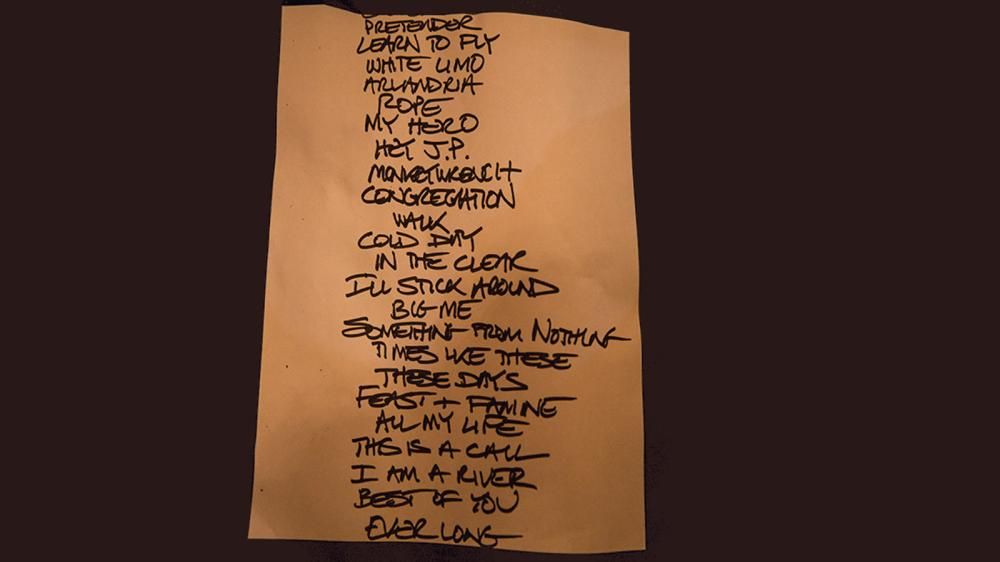 PRETENDER
LEARN TO FLY
WHITE LIMO
ARLANDRIA
ROPE
MY HERO
HEY J.P.
MONKEYWRENCH
CONGREGATION
WALK
COLD DAY
IN THE CLEAR
I'LL STICK AROUND
BIG ME
SOMETHING FROM NOTHING
TIMES LIKE THESE
THESE DAYS
FEAST + FAMINE
ALL MY LIFE
THIS IS A CALL
I AM A RIVER
BEST OF YOU
EVERLONG